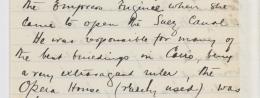 the Empress Eugenie when she
came to open the Suez Canal.
He was responsible for many of
the best buildings in Cairo, being
a very extravagant ruler, the
Opera House (rarely used) was